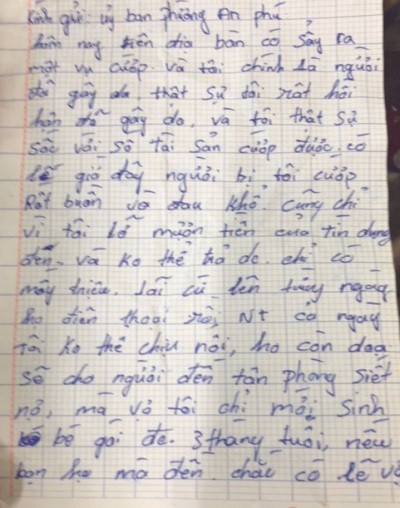 kính gửi: uỷ ban phường An phú
hôm nay trên địa bàn có sảy ra
một vụ cướp. và tôi chính là người
đã gây da, thật sự tôi rất hối
hận đã gây da, và tôi thật sự
sốc với số tài sản cướp được. có
lẽ giờ đây người bị tôi cướp
Rất buồn và đau khổ. cũng chỉ
vì tôi lỡ mượn tiền của tín dụng
đen. và ko thể trả dc. chỉ có
mấy triệu. lãi cứ lên từng ngày
họ điện thoại rồi, NT cả ngày
Tôi ko thể chịu nổi, họ còn doạ
sẽ cho người đến tân phòng siết
nợ, mà vợ tôi chỉ mới sinh
bé gái đc. 3 tháng tuổi, nếu
bọn họ mà đến. chắc có lẽ vợ